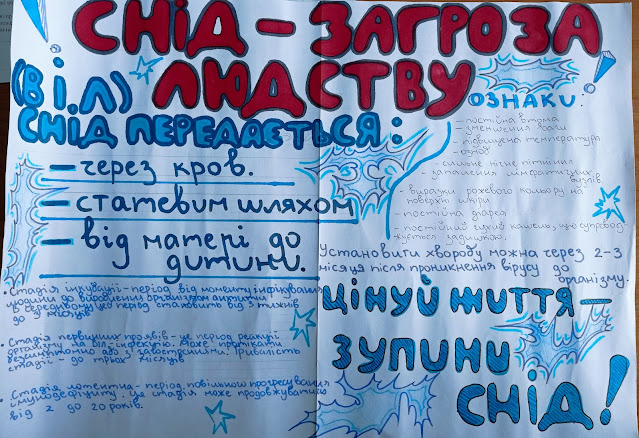 СНІД – ЗАГРОЗА
ЛЮДСТВУ
(ВІЛ)
СНІД ПЕРЕДАЄТЬСЯ:
– через кров.
– статевим шляхом
– від матері до
дитини.
• Стадія інкубації – період від моменту інфікування
людини до вироблення організмом антитіл
цей період становить від 3 тижнів
до 3 місяців
• Стадія первинних проявів – це період реакції
на ВІЛ-інфекцію. Може протікати
безсимптомно або з загостреннями. Тривалість
стадії – до трьох місяців
• Стадія латентна – період повільного прогресування
імунодефіциту. Ця стадія може продовжуватись
від 2 до 20 років.
ОЗНАКИ:
– постійна втома
зменшення ваги
– підвищена температура
– сильне нічне пітніння
– запалення лімфатичних
вузлів.
– виразки рожевого кольору на
поверхні шкіри
– постійна діарея
– постійний сухий кашель, що супровод
жується задишкою.
Установити хворобу можна через 2-3
місяця після проникнення вірусу до
організму.
ЦІНУЙ ЖИТТЯ –
ЗУПИНИ
СНІД!